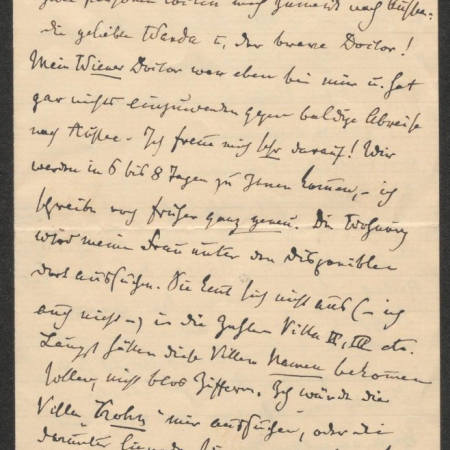 zwei Personen wollen mich zumeist nach Aussee:
die geliebte Wanda u. der brave Doctor!
Mein Wiener Doctor war eben bei mir u. hat
gar nichts einzuwenden gegen baldige Abreise
nach Aussee. – Ich freue mich sehr darauf! Wir
werden in 6 bis 8 Tagen zu Ihnen kommen, – ich
schreibe noch früher ganz genau. Die Wohnung
wird meine Frau unter den disponiblen
dort aussuchen. Sie kent sich nicht aus (– ich
auch nicht –) in die Zahlen Villa II, III etc.
Längst hätten diese Villen Namen bekommen
sollen, nicht blos Ziffern. Ich würde die
Villa "Krohn" mir aussuchen, oder die
darunter